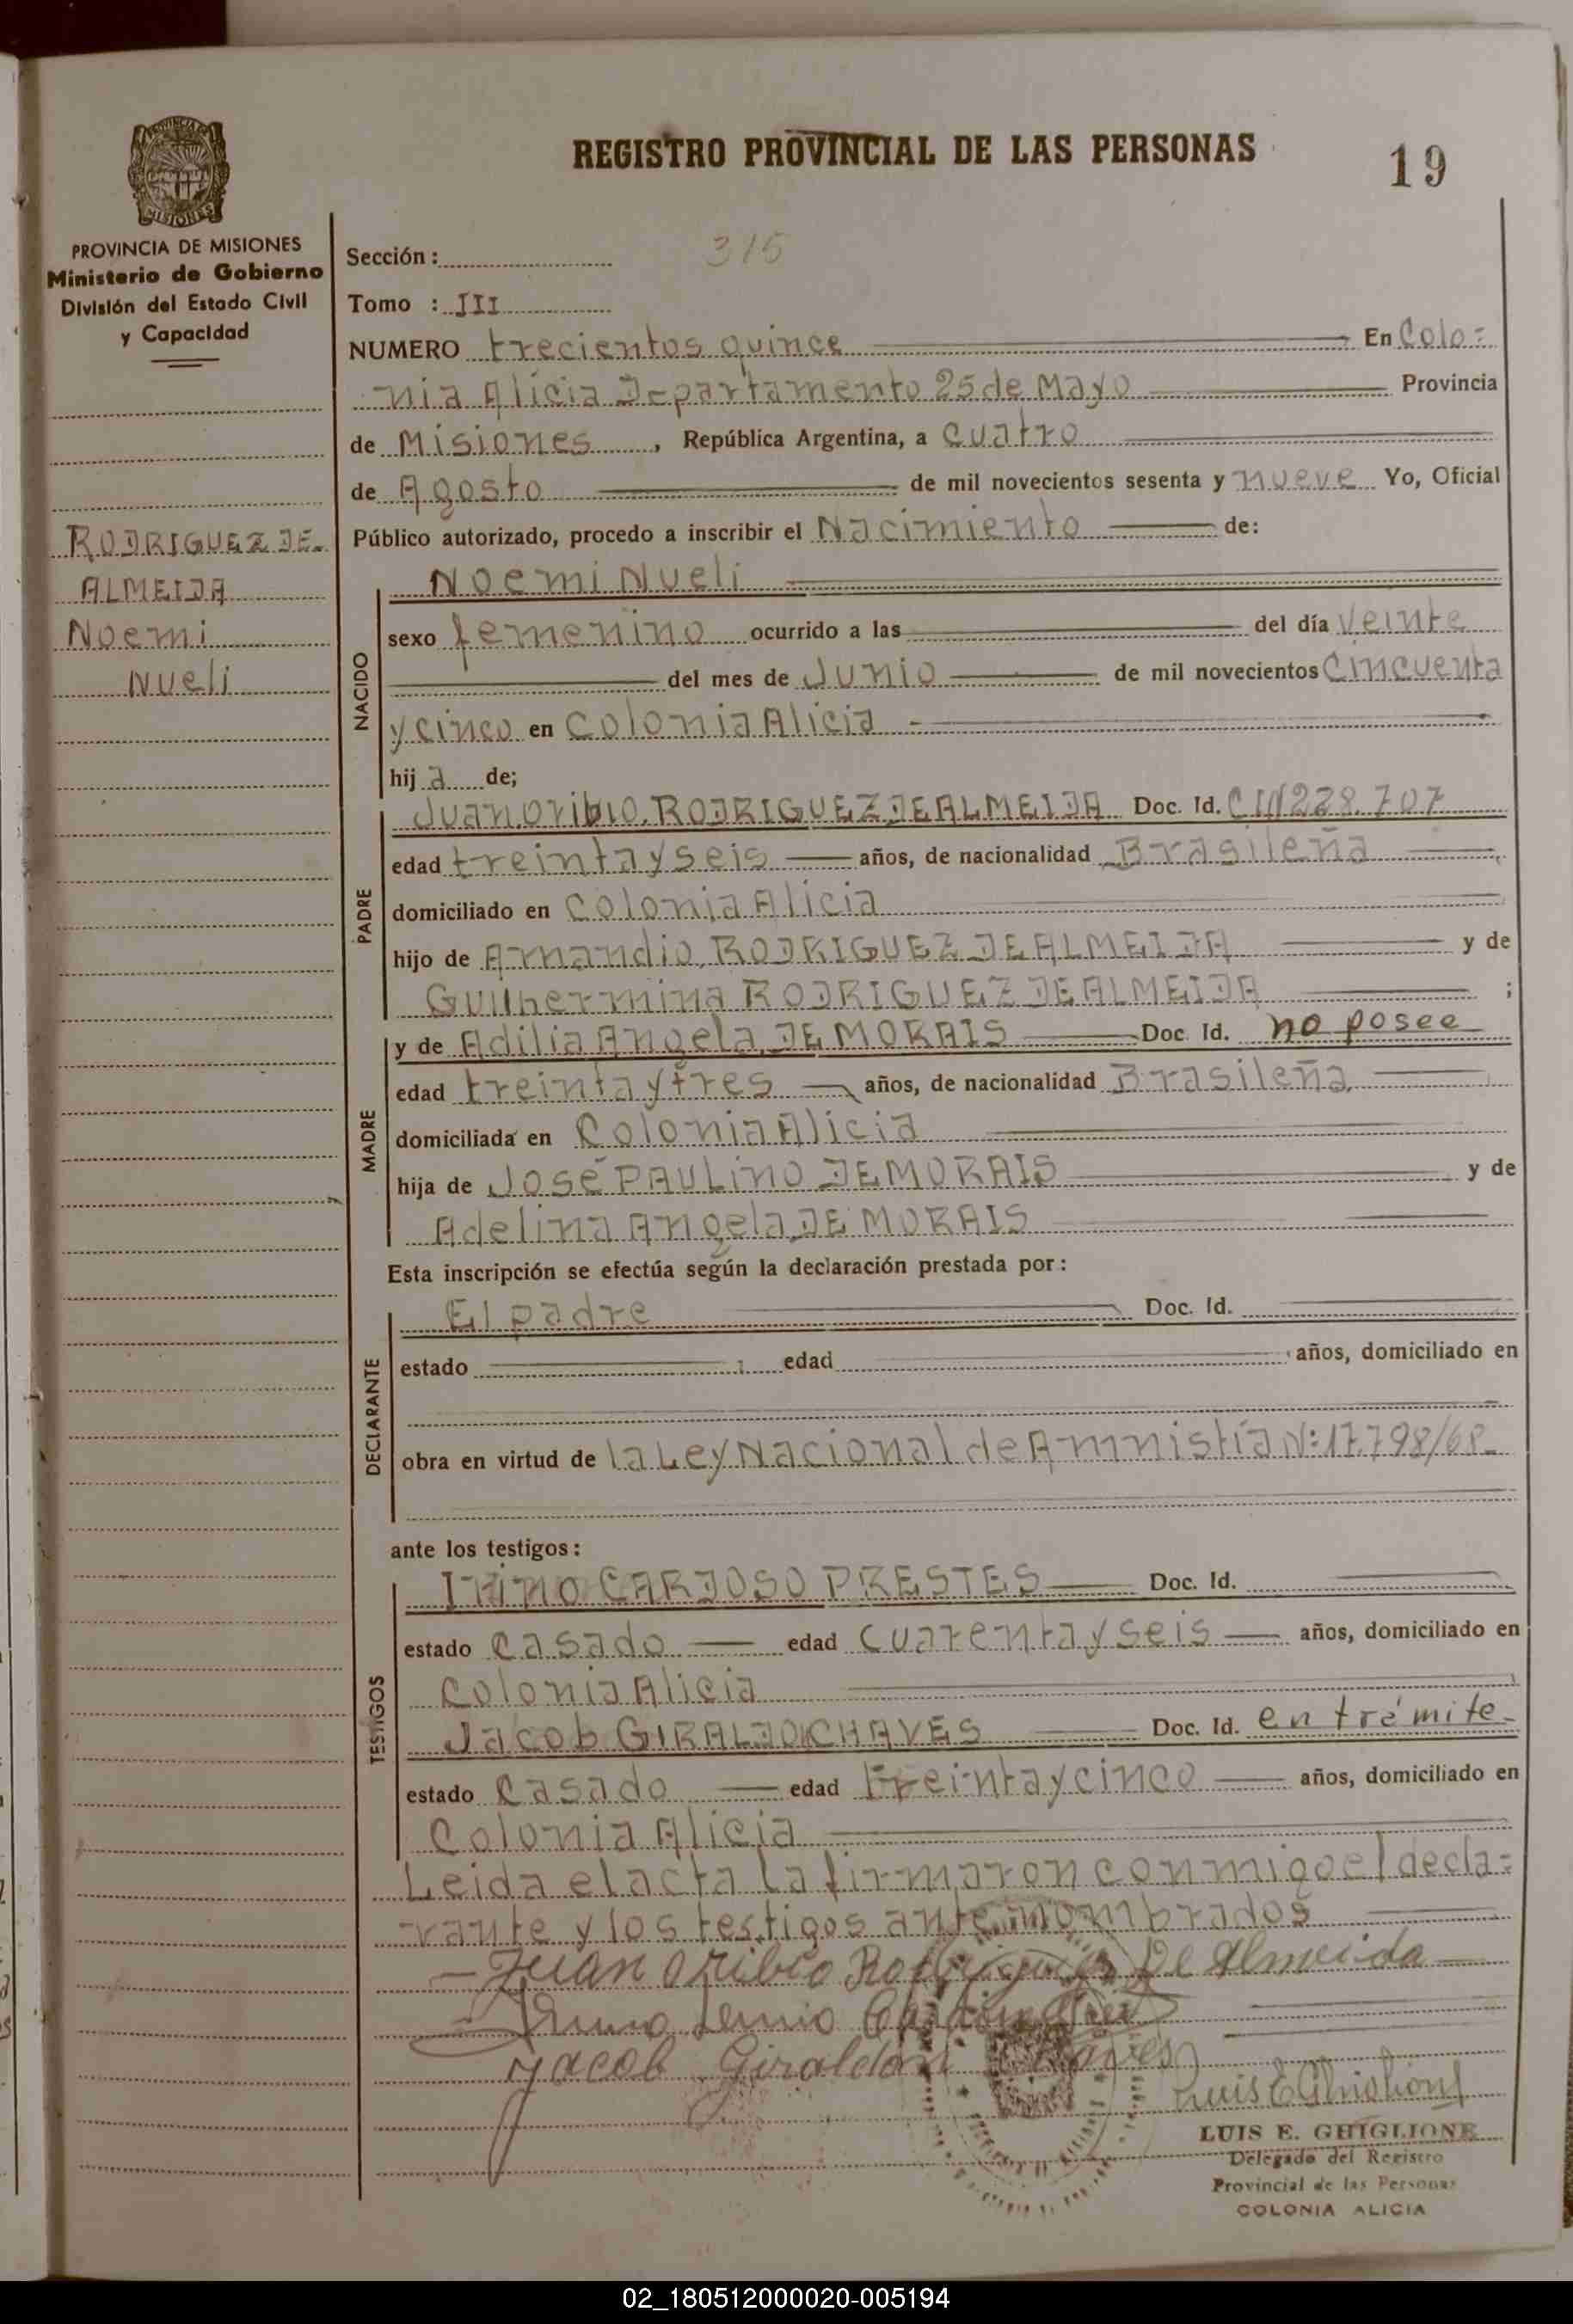 REGISTRO PROVINCIAL DE LAS PERSONAS
19
PROVINCIA DE MISIONES
Ministerio de Gobierno
División del Estado Civil
y Capacidad
RODRIGUEZ DE
ALMEIDA
Noemi
Nueli
315
Sección :
Tomo : III
NUMERO trecientos quince En Colo=
nia Alicia Departamento 25 de Mayo Provincia
de Misiones , República Argentina, a cuatro
de Agosto de mil novecientos sesenta y nueve Yo, Oficial
Público autorizado, procedo a inscribir el Nacimiento de:
NACIDO
Noemi Nueli
sexo femenino ocurrido a las del día veinte
del mes de Junio de mil novecientos cincuenta
y cinco en Colonia Alicia
hij a de;
PADRE
Juan Oribio RODRIGUEZ DE ALMEIDA Doc. Id. CIN 228.707
edad treinta y seis años, de nacionalidad Brasileña
domiciliado en Colonia Alicia
hijo de Amandio RODRIGUEZ DE ALMEIDA y de
Guilhermina RODRIGUEZ DE ALMEIDA ;
MADRE
y de Adilia Angela DE MORAIS Doc. Id. no posee
edad treinta y tres años, de nacionalidad Brasileña
domiciliada en Colonia Alicia
hija de José PAULINO DE MORAIS y de
Adelina Angela DE MORAIS
Esta inscripción se efectúa según la declaración prestada por :
DECLARANTE
El padre Doc. Id.
estado edad años, domiciliado en
obra en virtud de la Ley Nacional de Amnistía N: 17.798/68
ante los testigos :
TESTIGOS
CARDOSO PRESTES Doc. Id.
estado Casado edad cuarenta y seis años, domiciliado en
Colonia Alicia
Jacob GIRALDO CHAVES Doc. Id. en trámite
estado Casado edad treinta y cinco años, domiciliado en
Colonia Alicia
Leida el acta la firmaron conmigo el decla=
rante y los testigos ante nombrados
Juan Oribio Rodriguez De Almeida
Jacob Giraldo Chaves
Luis E Ghiglione
LUIS E. GHIGLIONE
Delegado del Registro
Provincial de las Personas
COLONIA ALICIA
02_180512000020-005194